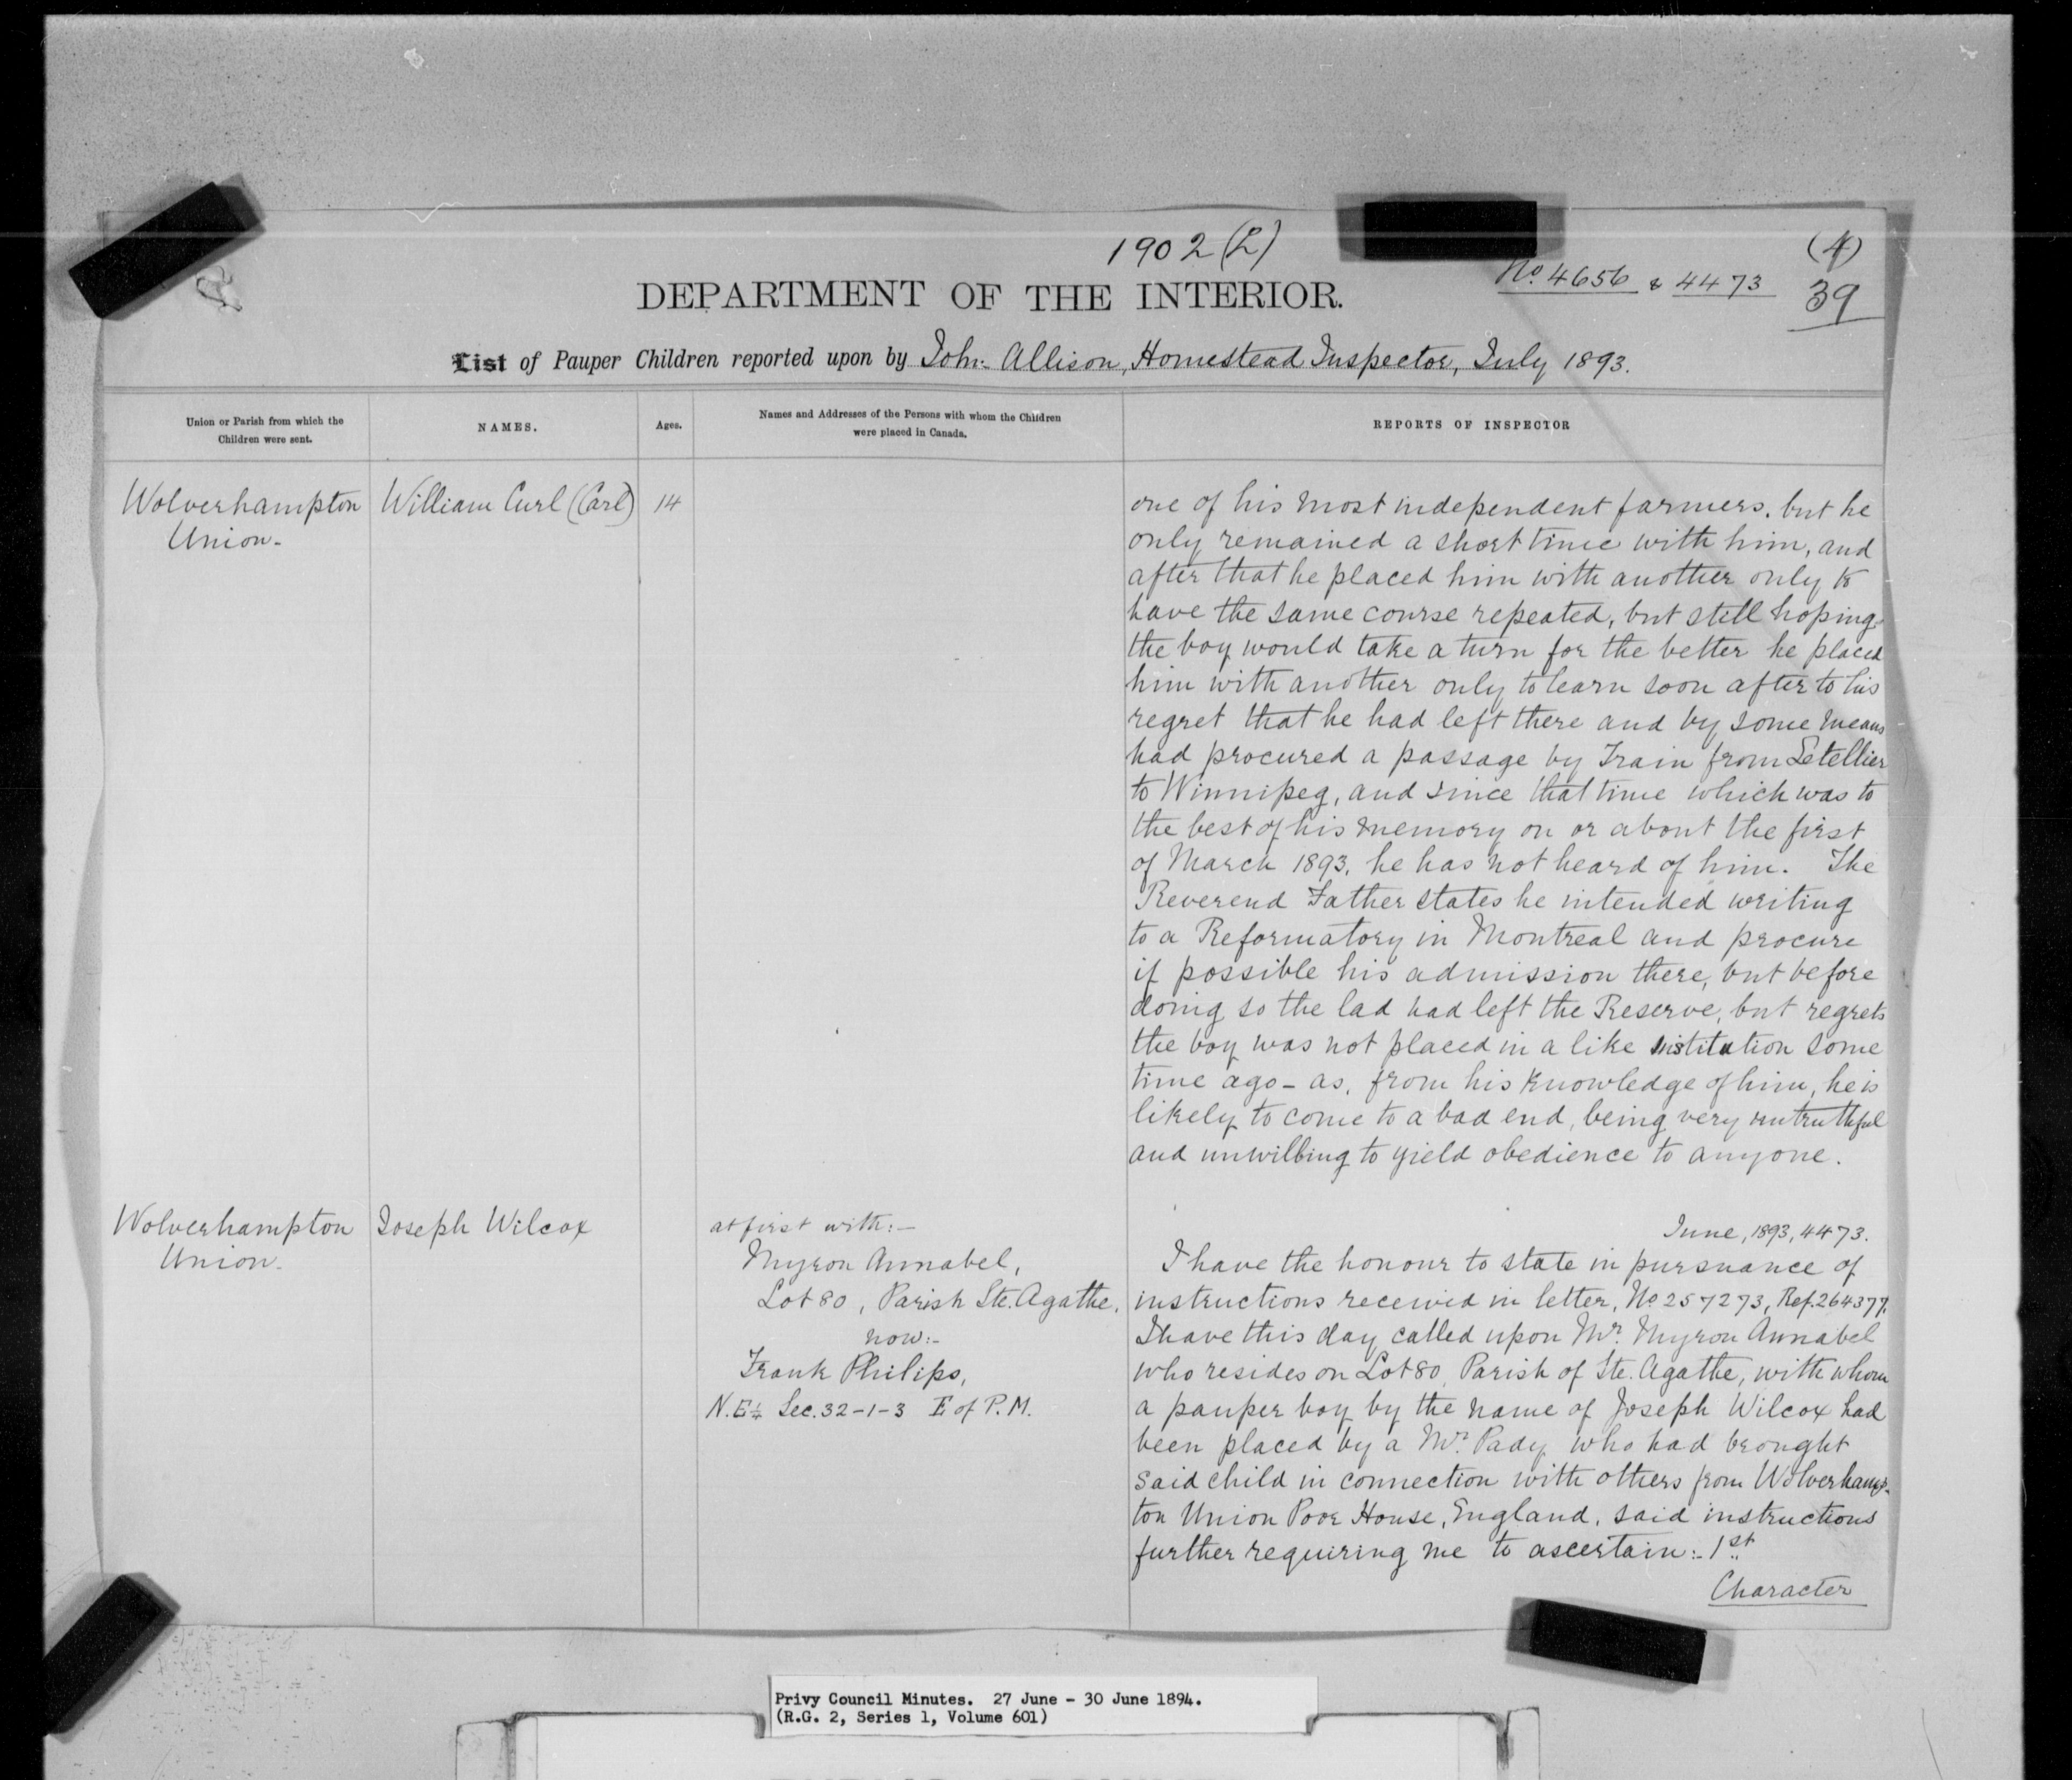 1902 (L)
(4)
No. 4656 & 4473
39
DEPARTMENT OF THE INTERIOR.
List of Pauper Children reported upon by John Allison, Homestead Inspector, July 1893.
Union or Parish from which the
Children were sent.
NAMES.
Ages.
Names and Addresses of the Persons with whom the Children
were placed in Canada.
REPORTS OF INSPECTOR
Wolverhampton
Union-
William Curl (Carl)
14
one of his most independent farmers, but he
only remained a short time with him, and
after that he placed him with another only to
have the same course repeated, but still hoping
the boy would take a turn for the better he placed
him with another only to learn soon after to his
regret that he had left there and by some means
had procured a passage by Train from Letellier
to Winnipeg, and since that time which was to
the best of his memory on or about the first
of March 1893, he has not heard of him. The
Reverend Father states he intended writing
to a Reformatory in Montreal and procure
if possible his admission there, but before
doing so the lad had left the Reserve, but regrets
the boy was not placed in a like institution some
time ago - as, from his knowledge of him, he is
likely to come to a bad end, being very untruthful
and unwilling to yield obedience to anyone.
Wolverhampton
Union-
Joseph Wilcox
at first with:-
Myron Annabel,
Lot 80, Parish Ste. Agathe,
now:-
Frank Philips,
N.E¼ Sec. 32-1-3 E of P.M.
June, 1893, 4473.
I have the honour to state in pursuance of
instructions received in letter, No 257273, Ref. 264377,
I have this day called upon Mr. Myron Annabel
who resides on Lot 80, Parish of Ste. Agathe, with whom
a pauper boy by the name of Joseph Wilcox had
been placed by a Mr. Pady who had brought
said child in connection with others from Wolverhamp-
ton Union Poor House, England, said instructions
further requiring me to ascertain:- 1st
Character
Privy Council Minutes. 27 June - 30 June 1894.
(R.G. 2, Series 1, Volume 601)